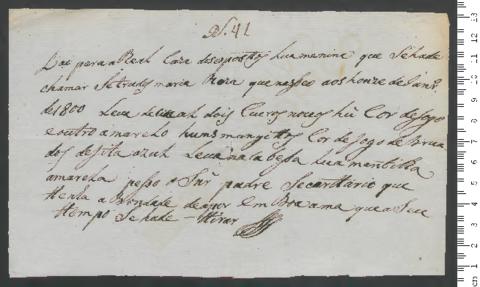 N. 41
Vae pera a Real Caza dos expostos huma menina que Se hade
chamar Getrudes maria Roza que nasseo aos honze de Janr.
de 1800 Leva de Sinal dois Cueros novos hũ Cor de fogo
e outro amarelo huns mangitos Cor de fogo de
dos de fita azul Leva na Cabessa hua mantilha
amarela pesso o Snr padre Secarttario que
tenha a Bondade de a por em Boa ama que a Seu
tempo Se hade tirar